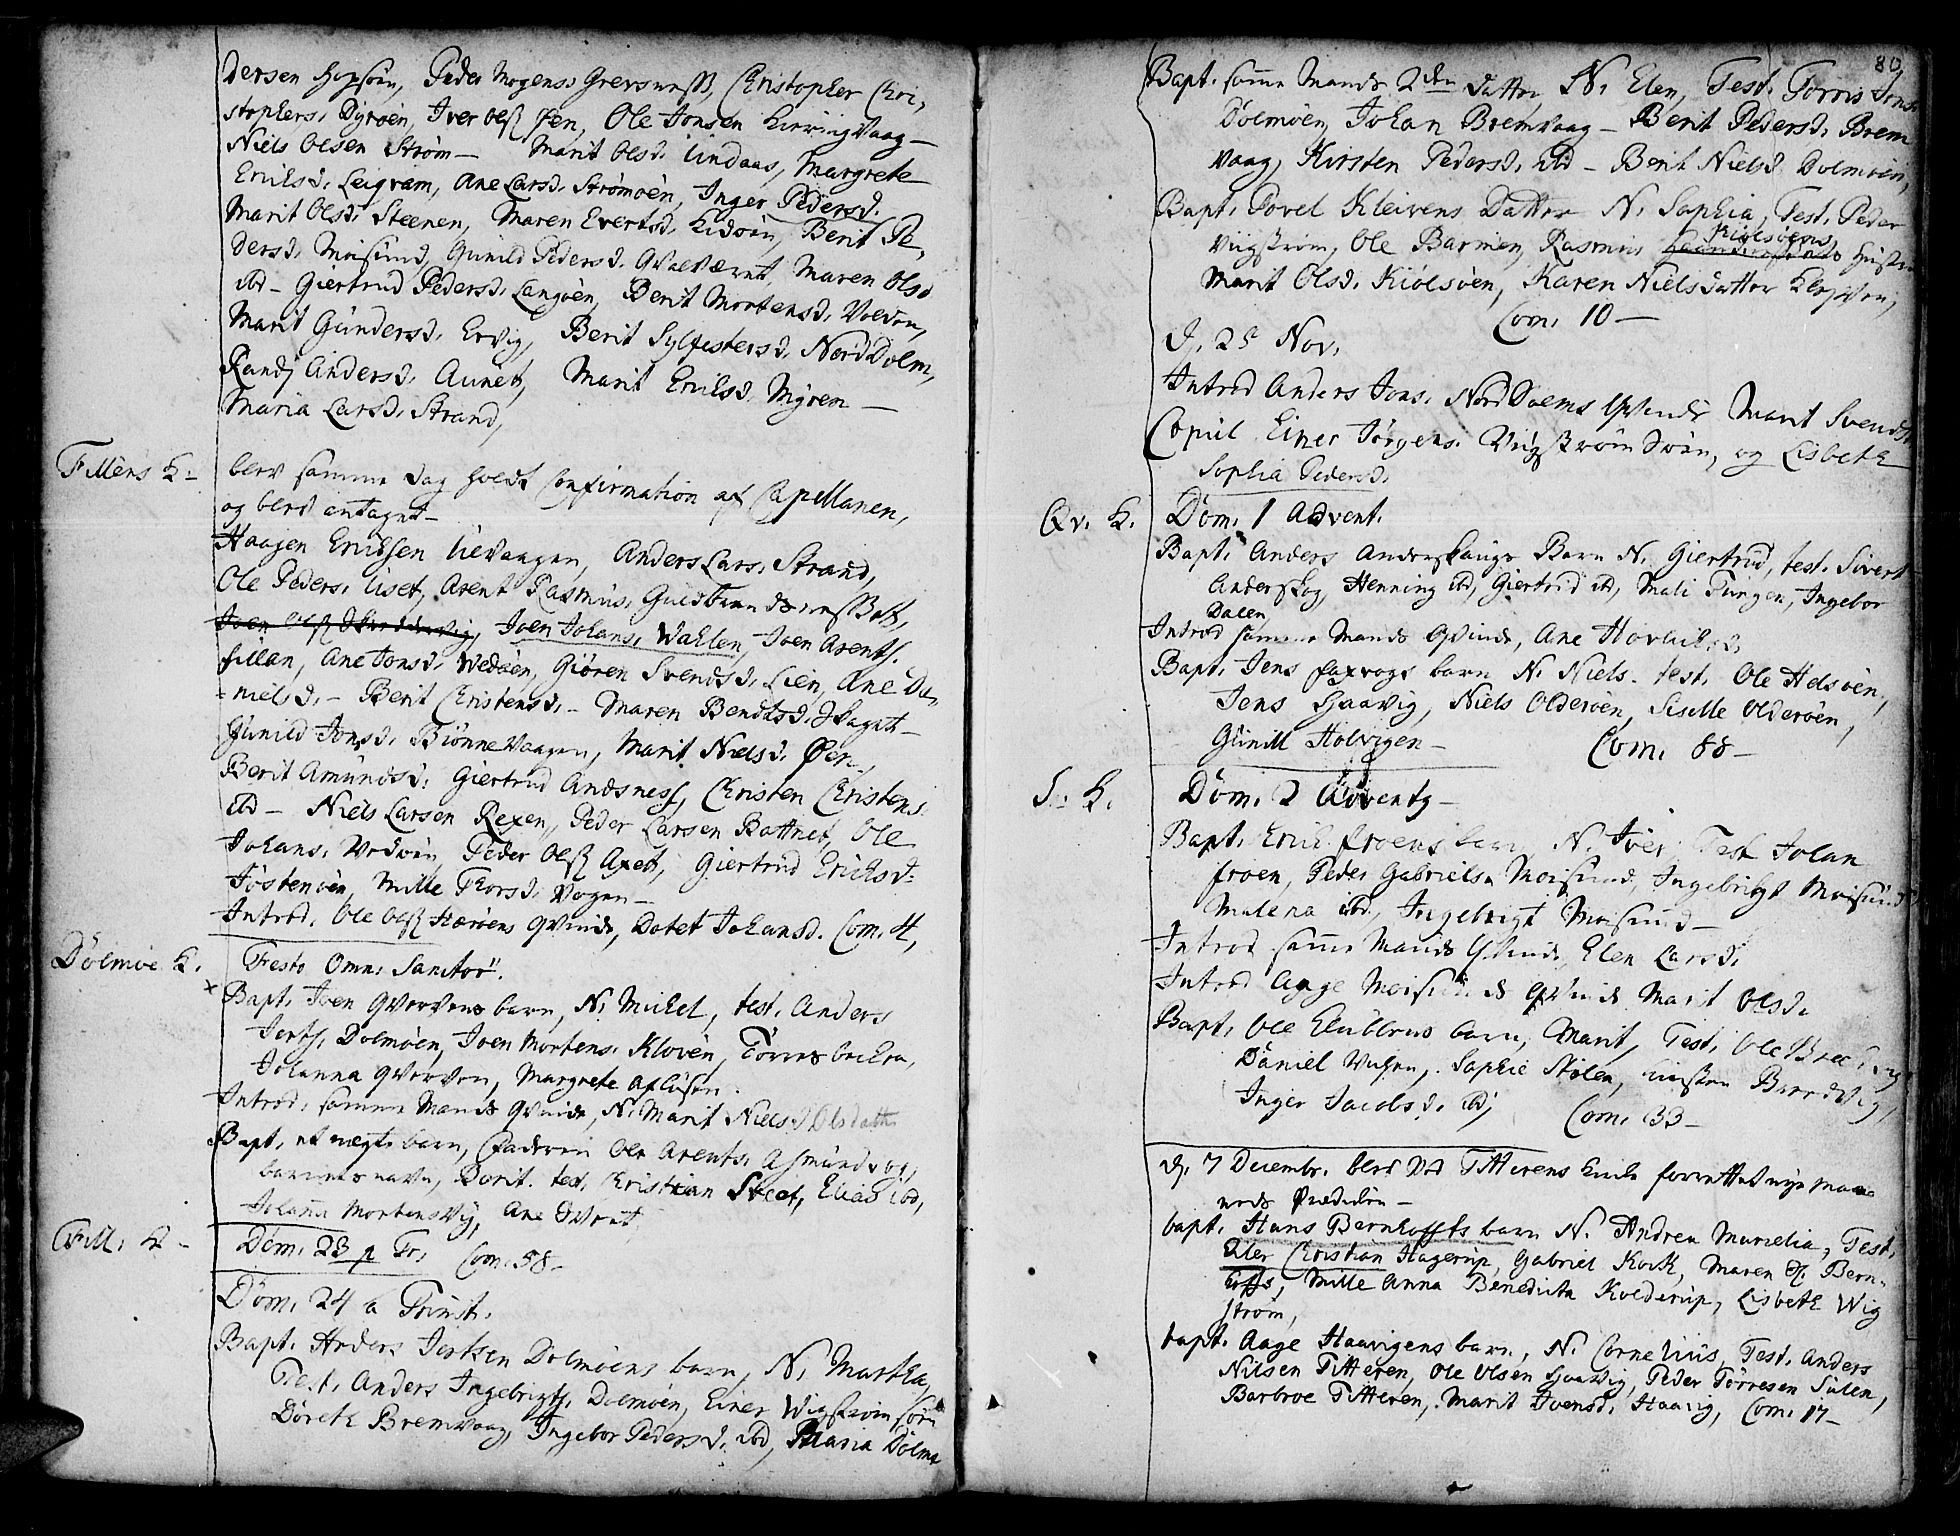 dersen Hopsøen, Peder Mogens: Grevsneß, Christopher Chri,
stophers: Dyrøen, Iver Olß Fen, Ole Jonsen Kierringvaag—
Niels Olsen Strøm— Marit Olsd: Lindaas, Margrete
Eriksd: Leigram, Ane Larsd: Strømøen, Inger Pedersd.
Marit Olsd: Steenen, Maren Evertsd: Kidøen, Berit Pe,
dersd. Moisund, Gunild Pedersd. Qvalværnet, Maren Olsd
ibd— Giertrud Pedersd: Langøen, Berit Mortensd. Volden,
Marit Gundersd. Ervig, Berit Sylfestersd. NordDolm,
Randj Andersd. Aunet, Marit Eriksd. Myren—
Maria Larsd. Strand,
Fillens K— blev samme dag holdt Confirmation af Capellanen,
og blev antaget—
Haagen Erichsen Lievaagen, Anders Lars: Strand,
Ole Peders: Liset, Arent Rasmus: Guldbrandsneß Bott,
Joen Johans: Wahlen, Joen Arents.
Fillan, Ane Jonsd: Wedøen, Giøren Svendsd. Lien, Ane Da-
nielsd.— Berit Christensd.— Maren Bendtsd. Skaget—
Gunild Jonsd: Biønnevaagen, Marit Nielsd. Øen,
Berit Amundsd: Giertrud Andsness, Christen Christens.
ibd— Niels Larsen Rexen, Peder Larsen Battnet, Ole
Johans: Vedøen, Peder Olß Axet, Giertrud Eriksd:
Jøstenøen, Mille Thorsd: Vogen—
Introd. Ole Olß Hærøens Qvinde, Dotet Johansd. Com. 4,
Dolmøe K. Festo Omn: Sanctor.
Bapt. Joen Qvervens barn, N. Michel, test. Anders
Jerts. Dolmøen, Joen Mortens: Kloven, Tørres
Johanna Qverven, Margrete
Introd. samme Mands Qvinde, N. Marit Niels Olsdatter
Bapt. et uægte barn, Faderen Ole Arents:
barnets navn, Berit. test. Christian Steet, Elias ibd,
Johanna Mortensvig, Ane
Fill. K— Dom. 23 p Tr. Com. 58—
Dom. 24 a Trinit.
Bapt. Anders Jertsen Dolmøens barn, N. Martha,
Test. Anders Ingebrigts. Dolmøen, Einer Wigstrøm søn
Doreth Bremvaag, Ingebor Pedersd. ibd, Maria Dolmø
80
Bapt. samme Mands 2den Datter N. Elen, Test. Torris Jons.
Dolmøen, Johan Bremvaag— Berit Pedersd. Brem
vaag, Kirsten Pedersd. ibd— Berit Nielsd. Dolmøen,
Bapt. Povel Kleivens Datter N. Sophia, Test. Peder
Viigstrøm, Ole Barmen, Rasmus Kiølsøens Hustru
Marit Olsd. Kiølsøen, Karen Nielsdatter
Com. 10—
d. 25 Nov.
Introd Anders Jons: NordDolms Qvinde Marit Svendsd.
Copul. Einer Jørgens. Viigstrøm og Lisbeth
Sophia Pedersd.
Qv. K. Dom. 1 Advent.
Bapt. Anders Anderskaugs Barn N. Giertrud, test. Sivert
Anderskog, Henning ibd, Giertrud ibd, Mali Tungen, Ingebor
Dalen
Introd samme Mands Qvinde, Ane
Bapt. Jens Faxvogs barn N. Niels. test. Ole Helsøen,
Jens Haavig, Niels Olderøen, Siselle Olderøen,
Gunill Holvigen— Com. 88—
S. K. Dom. 2 Adventg—
Bapt. Erich Froens barn N. Iver Test Johan
Froen, Peder Gabriels. Moisund, Ingebrigt Moisund
Malena ibd., Ingebrigt Moisund—
Introd samme Mands Qvinde, Elen Larsd.
Introd Aage Moisunds Qvinde Marit Olsd.
Bapt. Ole barn, Marit, Test. Ole
Daniel Sophie Stølen,
Inger Jacobsd. ibd, Com. 33—
d. 7 Decembr. blev ved Titterens Kirke forrettet
Prædiken—
bapt. Hans Bernhoffts barn N. Andrea Murelia, Test.
Eiler Christian Hagerup, Gabriel Kock, Maren Bern-
hoffs, Mille Anna Benedicta Kolderup, Lisbeth Wig
strøm,
bapt. Aage Haavigens barn, N. Cornelius, Test. Anders
Nilsen Titteren, Ole Olsen Haavig, Peder Tørresen Sulen,
Barbroe Titteren, Marit Joensd. Haavig, Com. 17—